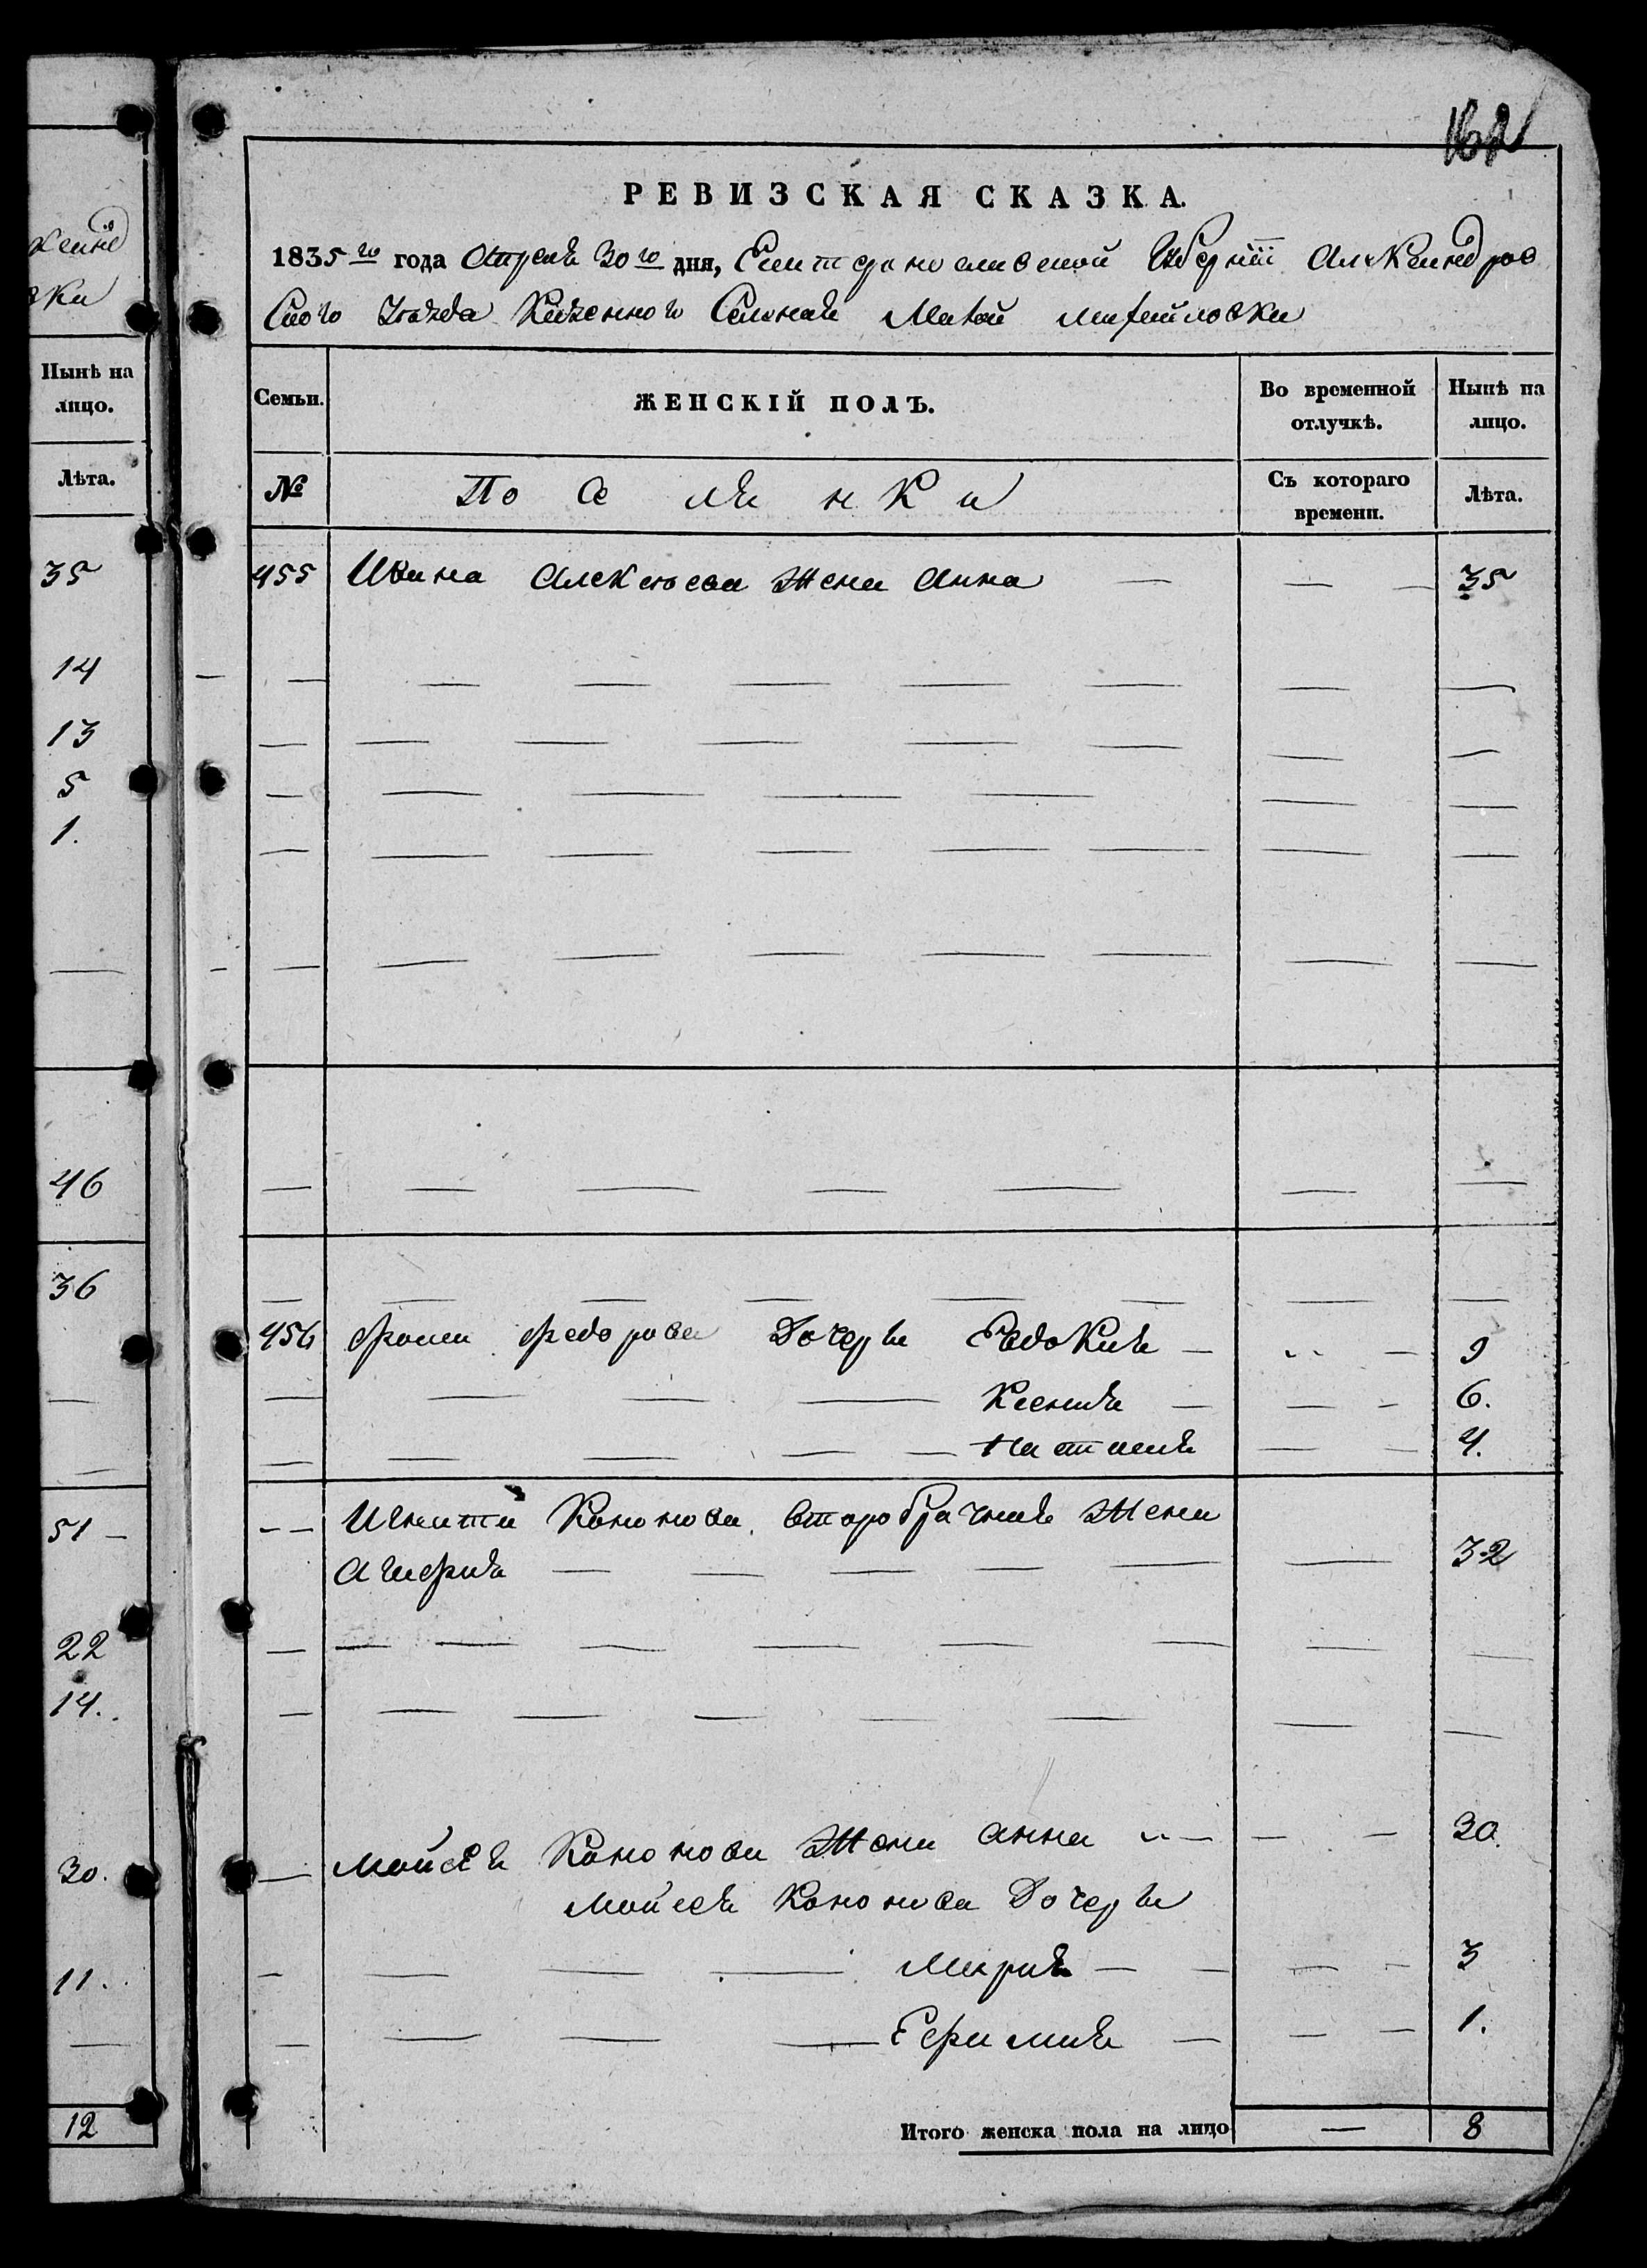 162
РЕВИЗСКАЯ СКАЗКА.
1835 го года Апреля 30 го дня, Екатеринославской Губернiи Александров
Ского Уезда Казенного Селения Малой Михайловки
ксанд
вки
Нынѣ на
лицо.
Лѣта.
Семьи.
ЖЕНСКІЙ ПОЛЪ.
Во временной
отлучкѣ.
Нынѣ на
лицо.
№
По Се ля н к и
Съ котораго
времени.
Лѣта.
35
455 Ивана Алексеева Жена Анна — — — 35
14
13
5
1.
46
36
456 Фомы Федорова Дочеръи Евдокия — — 9
Ксения — — — 6.
Наталия — — 4.
51 —
Игната Кононова второбрачная Жена
Агафия — — — — — — 32
22
14.
Мойсея Кононова Жена Анна — — — 30.
30.
Мойсея Кононова Дочеръи
Мария — — — — 3
11.
Ефимия — — — 1.
12
Итого женска пола на лицо — 8